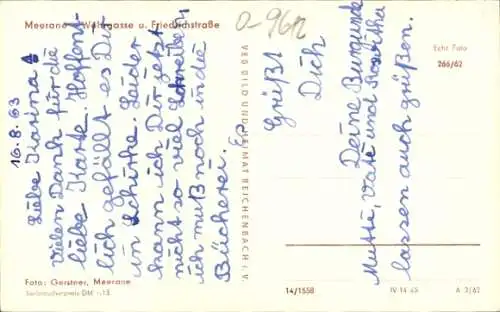 Meerane - Wehrgasse u. Friedrichstraße
O-9612
Echt Foto
266/62
16.8.63
Liebe Karina!
Vielen Dank für die
liebe Karte. Hoffent-
lich gefällt es Dir
in Schirke. Leider
kann ich Dir jetzt
nicht so viel schreiben
ich muß noch in die
Bücherei.
Es
Grüßt
Dich
Deine Burgunde
Mutti, Vati und Roswitha
lassen auch grüßen.
VEB BILD UND HEIMAT REICHENBACH i. V.
Foto: Gerstner, Meerane
Verbraucherpreis DM -,15
14/1558
IV-14-45
A 3/62